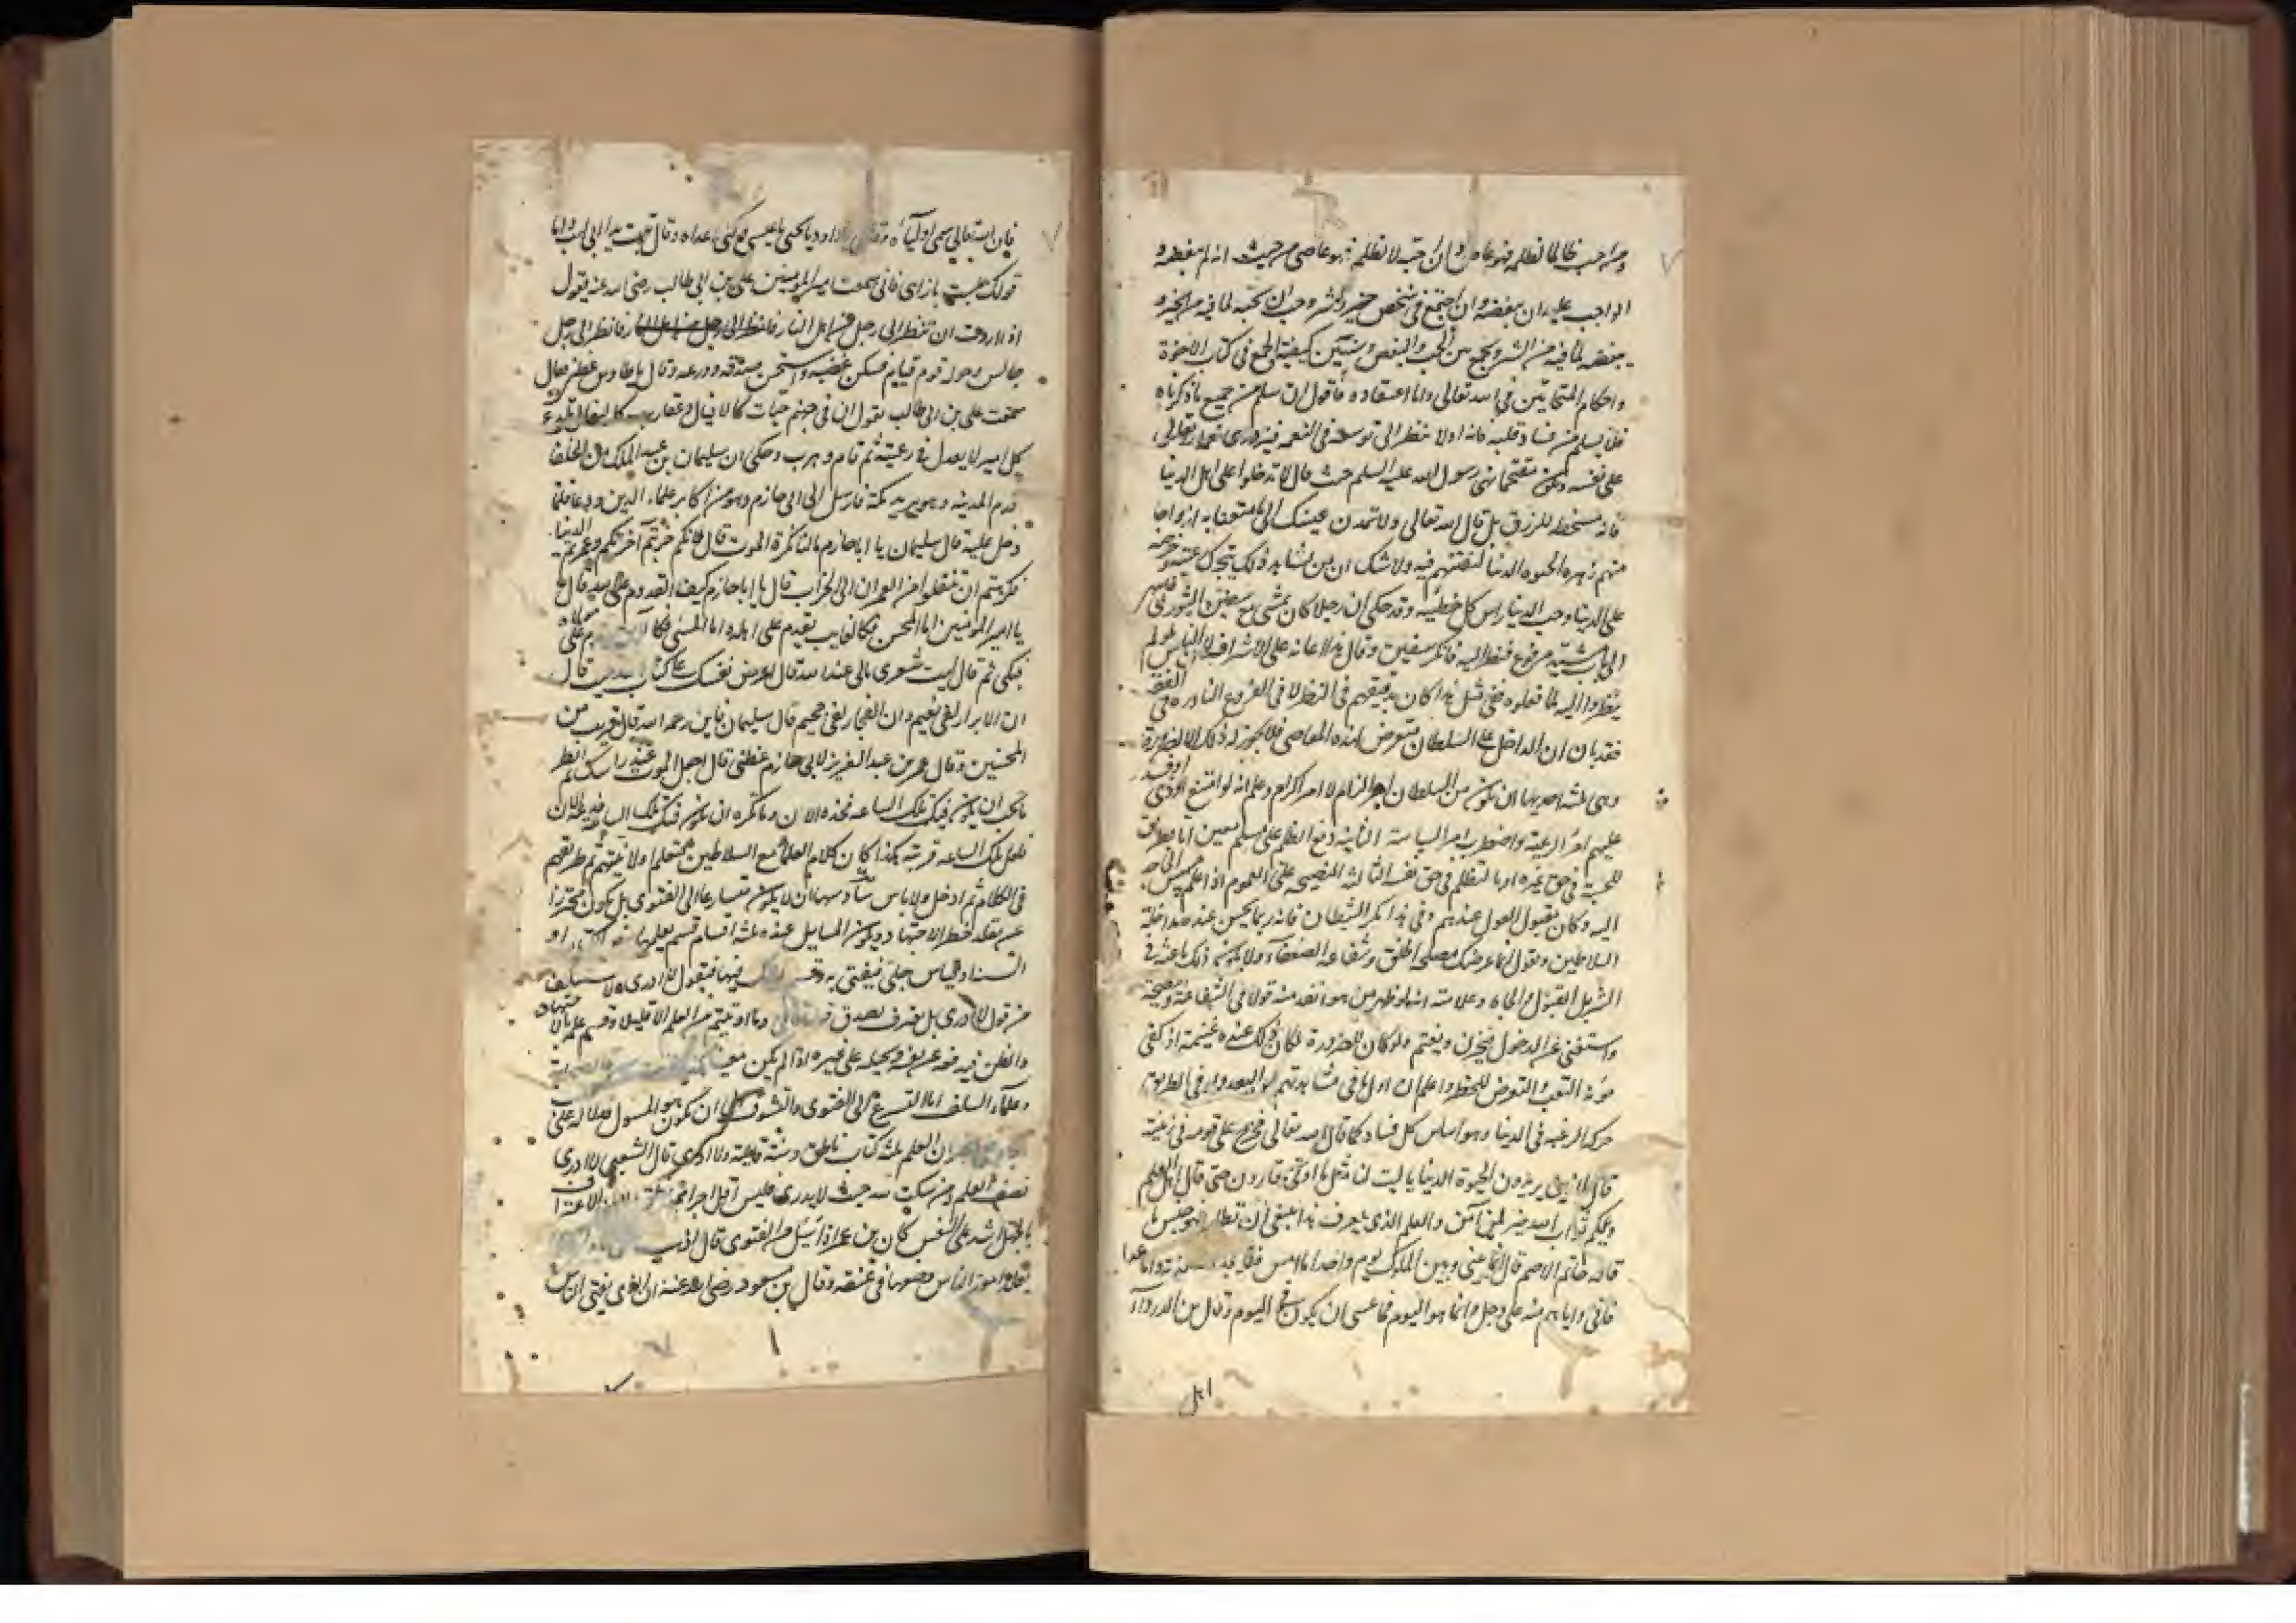 ومن احب ظالما لظلمه فهو عاص وان احبه لا لظلمه فهو عاصى من حيث انه لم يبغضه و
الواجب عليه ان يبغضه وان اجتمع فى شخص خير وشر وجب ان يحبه لما فيه من الخير و
يبغضه لما فيه من الشر ويجمع بين الحب والبغض وسنبين كيفية الجمع فى كتاب الاخوة
واحكام المتحابين فى الله تعالى واما اعتقاده فاقول ان سلم من جميع ما ذكرناه
فلا يسلم من فساد قلبه فانه اولا ينظر الى توسعه فى النعمه فيزدرى نعمة الله تعالى
على نفسه ويكون مقتحما نهى رسول الله عليه السلم حيث قال لا تدخلوا على اهل الدنيا
فانه مسخطه للرزق بل قال الله تعالى ولا تمدن عينيك الى ما متعنا به ازواجا
منهم زهره الحيوه الدنيا لنفتنهم فيه ولا شك ان من شاهد ذلك يتحرك
على الدنيا وحب الدنيا راس كل خطيئه وقد حكى ان رجلا كان يمشى مع سفين الثورى
الى باب مشيد مرفوع فنظر اليه فانكر سفين وقال هذا اعانه على الاسراف لان الناس لو لم
ينظروا اليه لما فعلوه ففى مثل هذا كان تدقيقهم فى النظر لا فى الفروع النادره فى الفقه
فقد بان ان الداخل على السلطان متعرض لهذه المعاصى فلا يجوز له ذلك الا لضرورة
وهى ثلثه احديها ان يكون من السلطان امر الزام لا امر اكرام وعلم انه لو امتنع اوذى او فسد
عليهم امر الرعية واضطرب امر السياسة الثانية دفع الظلم على مسلم معين اما بطريق
للحسبة فى حق غيره او بالتظلم فى حق نفسه الثالثه النصيحه على العموم اذا علم مسيس الحاجه
اليه وكان مقبول القول عندهم وفى هذا مكر الشيطان فانه ربما يحسن عنده مداخلة
السلاطين ويقول انما غرضك مصلحه الخلق وشفاعه الضعفاء ولا يكون ذلك باعثه فى
السر بل القبول والجاه وعلامته انه لو ظهر من هو انفذ منه قولا فى الشفاعة ونصيحة
واستغنى عن الدخول فيحزن ويغتم ولو كان للضرورة لكان ذلك عنده غنيمة اذ كفى
مؤنة التعب والتعرض للخطر واعلم ان اول ما فى مشاهدتهم
حركه الرغبه فى الدنيا وهو اساس كل فساد كما قال الله تعالى فخرج على قومه فى زينته
قال الذين يريدون الحيوة الدنيا يا ليت لنا مثل ما اوتى قارون حتى قال اهل العلم
ويلكم ثواب الله خير لمن آمن والعلم الذى يعرف هذا ينبغى ان
قاله حاتم الاصم قال انما بينى وبين الملوك يوم واحد اما امس فلا واما غدا
فانى واياهم منه على وجل وانما هو اليوم فما عسى ان يكون فى اليوم وقال بن الدرداء
اهل
فان الله تعالى سمى اولياءه وقال يا داود يا يحيى يا عيسى وكنى اعداه وقال تبت يدا ابى لهب واما
قولك جلست بازاى فانى سمعت امير المؤمنين على بن ابى طالب رضى الله عنه يقول
اذا اردت ان تنظر الى رجل من اهل النار فانظر الى رجل
جالس وحوله قوم قيام فسكن غضبه واستحسن صدقه وورعه وقال يا طاوس عظنى فقال
سمعت على بن ابى طالب يقول ان فى جهنم حيات كالافيال وعقارب كالبغال تلدغ
كل امير لا يعدل فى رعيته ثم قام وهرب وحكى ان سليمان بن عبد الملك من الخلفا
قدم المدينه وهو يريد مكة فارسل الى ابى حازم وهو من اكابر علماء الدين ودعا فلما
دخل عليه قال سليمان يا ابا حازم مالنا نكره الموت قال لانكم خربتم آخرتكم وعمرتم الدنيا
فكرهتم ان تنتقلوا من العمران الى الخراب قال يا ابا حازم كيف القدوم على الله قال
يا امير المؤمنين اما المحسن فكالغايب يقدم على اهله واما المسئ فكالآبق يقدم على مولاه
فبكى ثم قال ليت شعرى مالى عند الله قال اعرض نفسك على كتاب الله حيث قال
ان الابرار لفى نعيم وان الفجار لفى جحيم قال سليمان فاين رحمه الله قال قريب من
المحسنين وقال عمر بن عبد العزيز لابى حازم عظنى قال اجعل الموت عند راسك ثم انظر
ما تحب ان يكون فيك تلك الساعه فخذه الان وما تكره ان يكون فيك تلك الساعه فدعه الان
فلعل تلك الساعه قريبه هكذا كان كلام العلماء مع السلاطين
فى الكلام ثم ادخل ولا باس ومنها ان لا يكون متسارعا الى الفتوى بل يكون محترزا
عن تقلد خطر الاجتهاد ويكون المسايل عنده ثلثه اقسام قسم يعلمه
السنة او قياس جلى فيفتى به وقسم يشك فيها فيقول لا ادرى ولا يستنكف
من قول لا ادرى بل يعرف تصديق قوله تعالى وما اوتيتم من العلم الا قليلا وقسم
والظن فيه فهو ويحيله على غيره اذا لم يكن معينا
وعلماء السلف اما التسرع الى الفتوى والتشوف الى ان يكون هو المسول
ان العلم ثلثه كتاب ناطق وسنة قايمة ولا ادرى قال الشعبى لا ادرى
نصف العلم ومن سكت لله حيث لا يدرى فليس اقل اجرا ممن نطق لان الاعتراف
بالجهل اشد على النفس كان بن عمر اذا سئل عن الفتوى قال اذهب
تقلد امور الناس وضعها فى عنقه وقال بن مسعود رضى الله عنه ان الذى يفتى الناس